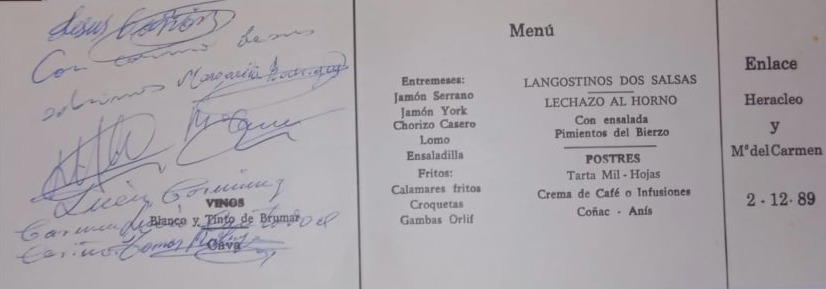 Jesus
Con cariño de sus
sobrinos Margarita Rodriguez
VINOS
Blanco y Tinto de Brumar
Cava
Menú
Entremeses:
Jamón Serrano
Jamón York
Chorizo Casero
Lomo
Ensaladilla
Fritos:
Calamares fritos
Croquetas
Gambas Orlif
LANGOSTINOS DOS SALSAS
LECHAZO AL HORNO
Con ensalada
Pimientos del Bierzo
POSTRES
Tarta Mil - Hojas
Crema de Café o Infusiones
Coñac - Anís
Enlace
Heracleo
y
Mª del Carmen
2 - 12 - 89